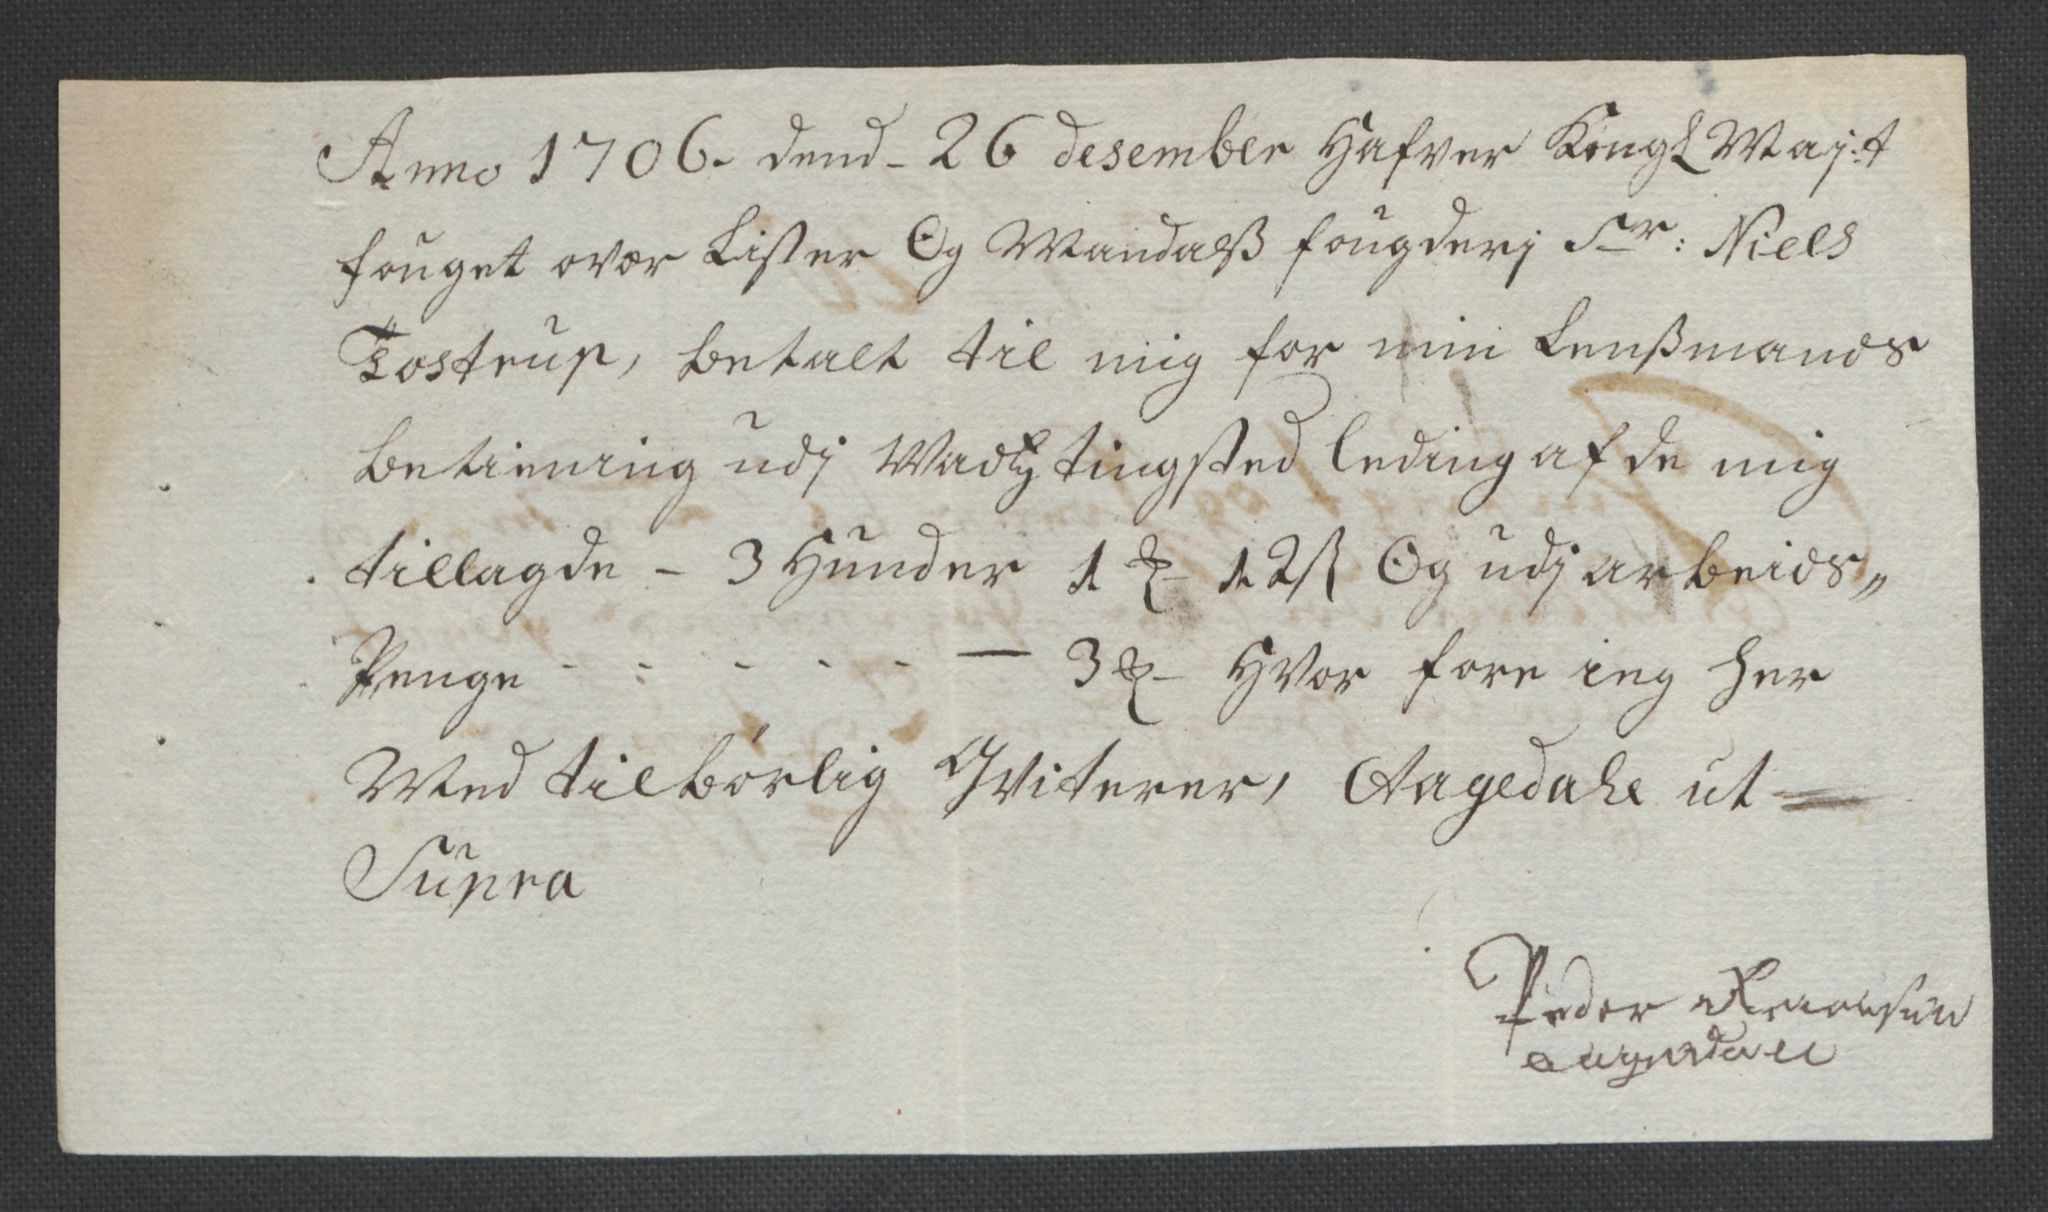 Anno 1706. dend - 26 desember Hafver Kongl Maj:t
fouget over Lister Og Mandalß fougderj Sr: Niels
Tostrup, betalt til mig for min Lenßmands
betiening udj tingsted leding af de mig
tillagde - 3 Hunder 1 Rd 12 ß Og udj arbeids„
Penge - - - - - — 3 Rd Hvor fore ieg her
Med tilbørlig Qviterer, Aagedahl ut
Supra
Peder